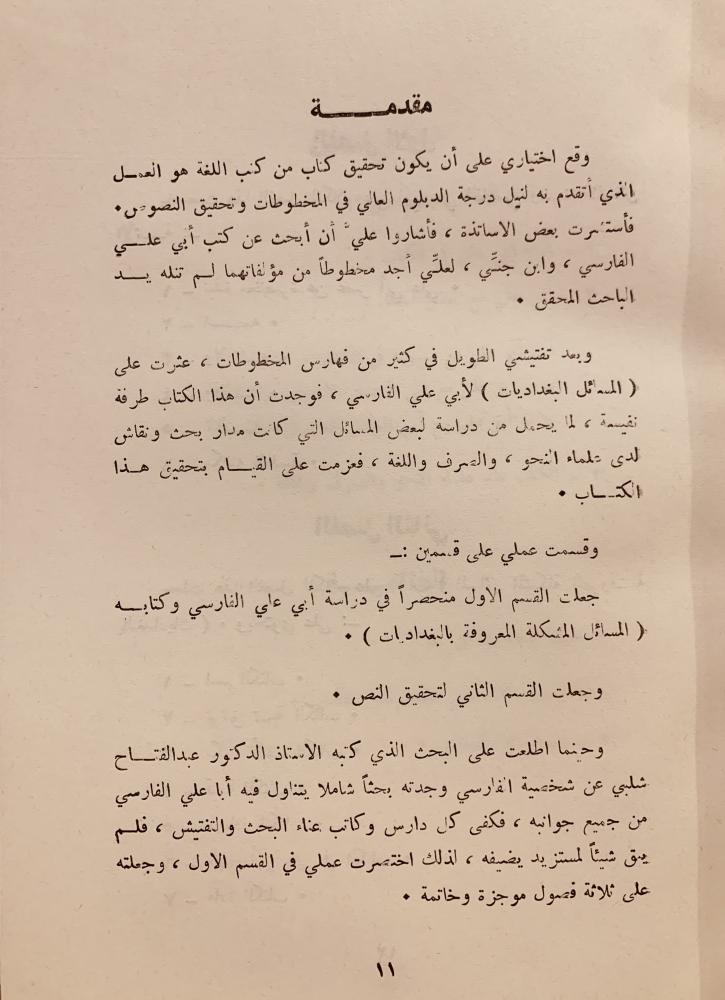 مقدمـــــة
وقع اختياري على أن يكون تحقيق كتاب من كتب اللغة هو العمـل
الذي أتقدم به لنيل درجة الدبلوم العالي في المخطوطات وتحقيق النصوص ٠
فأستشرت بعض الاساتذة ، فأشاروا عليَّ أن أبحث عن كتب أبي علـــي
الفارسي ، وابن جنيِّ ، لعلِّي أجد مخطوطاً من مؤلفاتهما لــم تنله يـــد
الباحث المحقق ٠
وبعد تفتيشي الطويل في كثير من فهارس المخطوطات ، عثرت على
( المسائل البغداديات ) لأبي علي الفارسي ، فوجدت أن هذا الكتاب طرفة
نفيسة ، لما يحمل من دراسة لبعض المسائل التي كانت مدار بحث ونقاش
لدى علماء النحو ، والصرف واللغة ، فعزمت على القيــام بتحقيق هــذا
الكتــاب ٠
وقسمت عملي على قسمين :ــ
جعلت القسم الاول منحصراً في دراسة أبي علي الفارسي وكتابــه
( المسائل المشكلة المعروفة بالبغداديات ) ٠
وجعلت القسم الثاني لتحقيق النص ٠
وحينما اطلعت على البحث الذي كتبه الاستاذ الدكتور عبدالفتــاح
شلبي عن شخصية الفارسي وجدته بحثاً شاملا يتناول فيه أبا علي الفارسي
من جميع جوانبه ، فكفى كل دارس وكاتب عناء البحث والتفتيش ، فلــم
يبق شيئاً لمستزيد يضيفه ، لذلك اختصرت عملي في القسم الاول ، وجعلته
على ثلاثة فصول موجزة وخاتمة ٠
١١